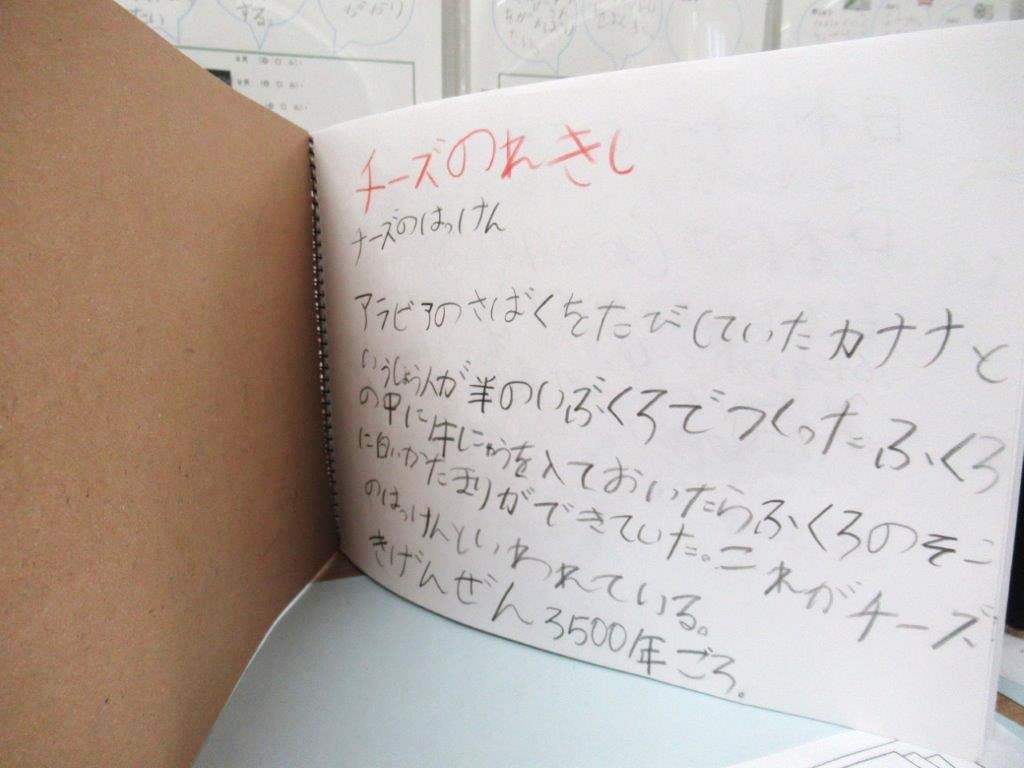 チーズのれきし
チーズのはっけん
アラビアのさばくをたびしていたカナナと
いうしょう人が羊のいぶくろでつくったふくろ
の中に牛にゅうを入ておいたらふくろのそこ
に白いかたまりができていた。これがチーズ
のはっけんといわれている。
きげんぜん3500年ごろ。
する。